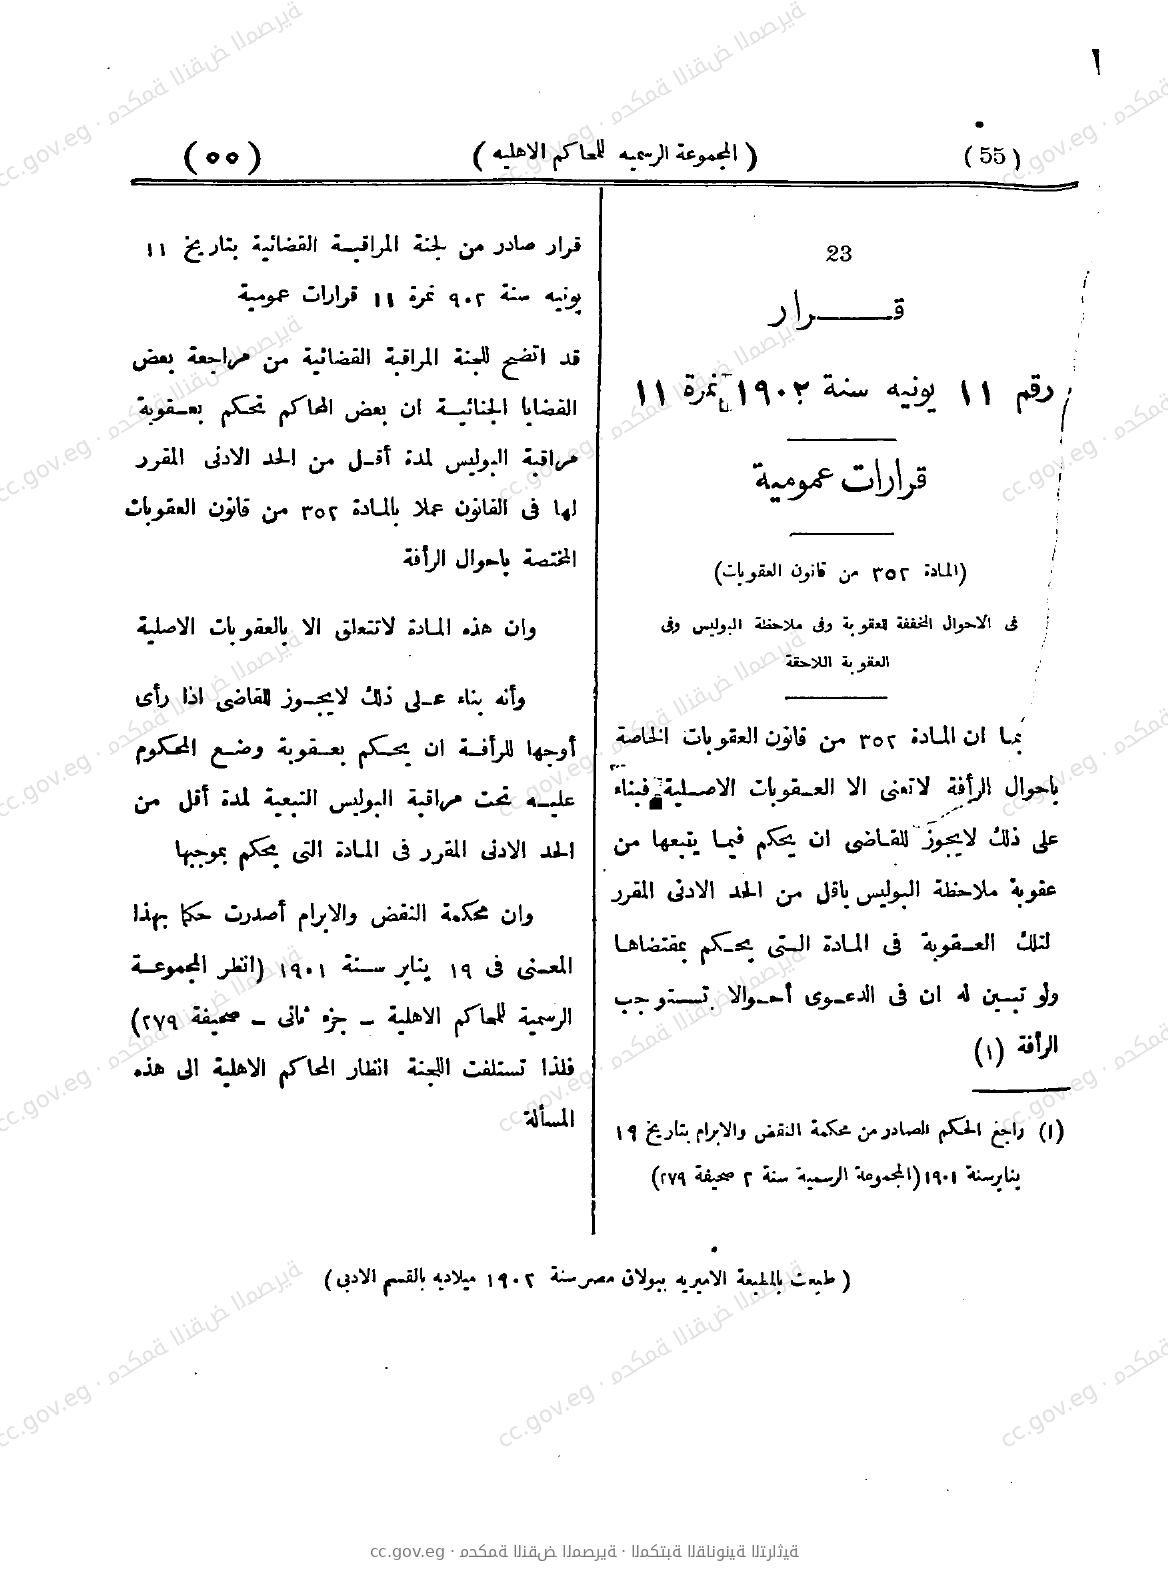 (55) (المجموعة الرسميه للمحاكم الاهليه) (٥٥)
23
قــــرار
رقم ١١ يونيه سنة ١٩٠٢ نمرة ١١
قرارات عمومية
(المادة ٣٥٢ من قانون العقوبات)
فى الاحوال المخففة للعقوبة وفى ملاحظة البوليس وفى
العقوبة اللاحقة
بما ان المادة ٣٥٢ من قانون العقوبات الخاصة
باحوال الرأفة لاتعنى الا العـقوبات الاصـلية فبناء
على ذلك لايجوز للقـاضى ان يحكم فيما يتبعها من
عقوبة ملاحظة البوليس باقل من الحد الادنى المقرر
لتلك العـقوبة فى المـادة الـتى يحـكم بمقتضاهـا
ولو تبـين له ان فى الدعـوى أحـوالا تسـتوجب
الرأفة (١)
(١) راجع الحكم الصادر من محكمة النقض والابرام بتاريخ ١٩
يناير سنة ١٩٠١ (المجموعة الرسمية سنة ٢ صحيفة ٢٧٩)
قرار صادر من لجنة المراقبـة القضائية بتاريخ ١١
يونيه سنة ٩٠٢ نمرة ١١ قرارات عمومية
قد اتضح للجنة المراقبة القضائية من مراجعة بعض
القضايا الجنائيـة ان بعض المحاكم تحكم بعـقوبة
مراقبة البوليس لمدة أقـل من الحد الادنى المقرر
لها فى القانون عملا بالمـادة ٣٥٢ من قانون العقوبات
المختصة باحوال الرأفة
وان هذه المـادة لاتتعلق الا بالعقوبات الاصلية
وأنه بناء عـلى ذلك لايجـوز للقاضى اذا رأى
أوجها للرأفـة ان يحـكم بعـقوبة وضـع المحكوم
عليـه تحت مراقبة البوليس التبعية لمدة أقل من
الحد الادنى المقرر فى المـادة التى يحكم بموجبها
وان محكمة النقض والابرام أصدرت حكما بهذا
المعـنى فى ١٩ يناير سـنة ١٩٠١ (انظر المجموعـة
الرسمية للمحاكم الاهلية ـ جزء ثانى ـ صحيفة ٢٧٩)
فلذا تستلفت اللجنة انظار المحاكم الاهلية الى هذه
المسألة
(طبعت بالمطبعة الاميريه ببولاق مصر سنة ١٩٠٢ ميلاديه بالقسم الادبى)
cc.gov.eg · محكمة النقض المصرية · المكتبة القانونية التراثية